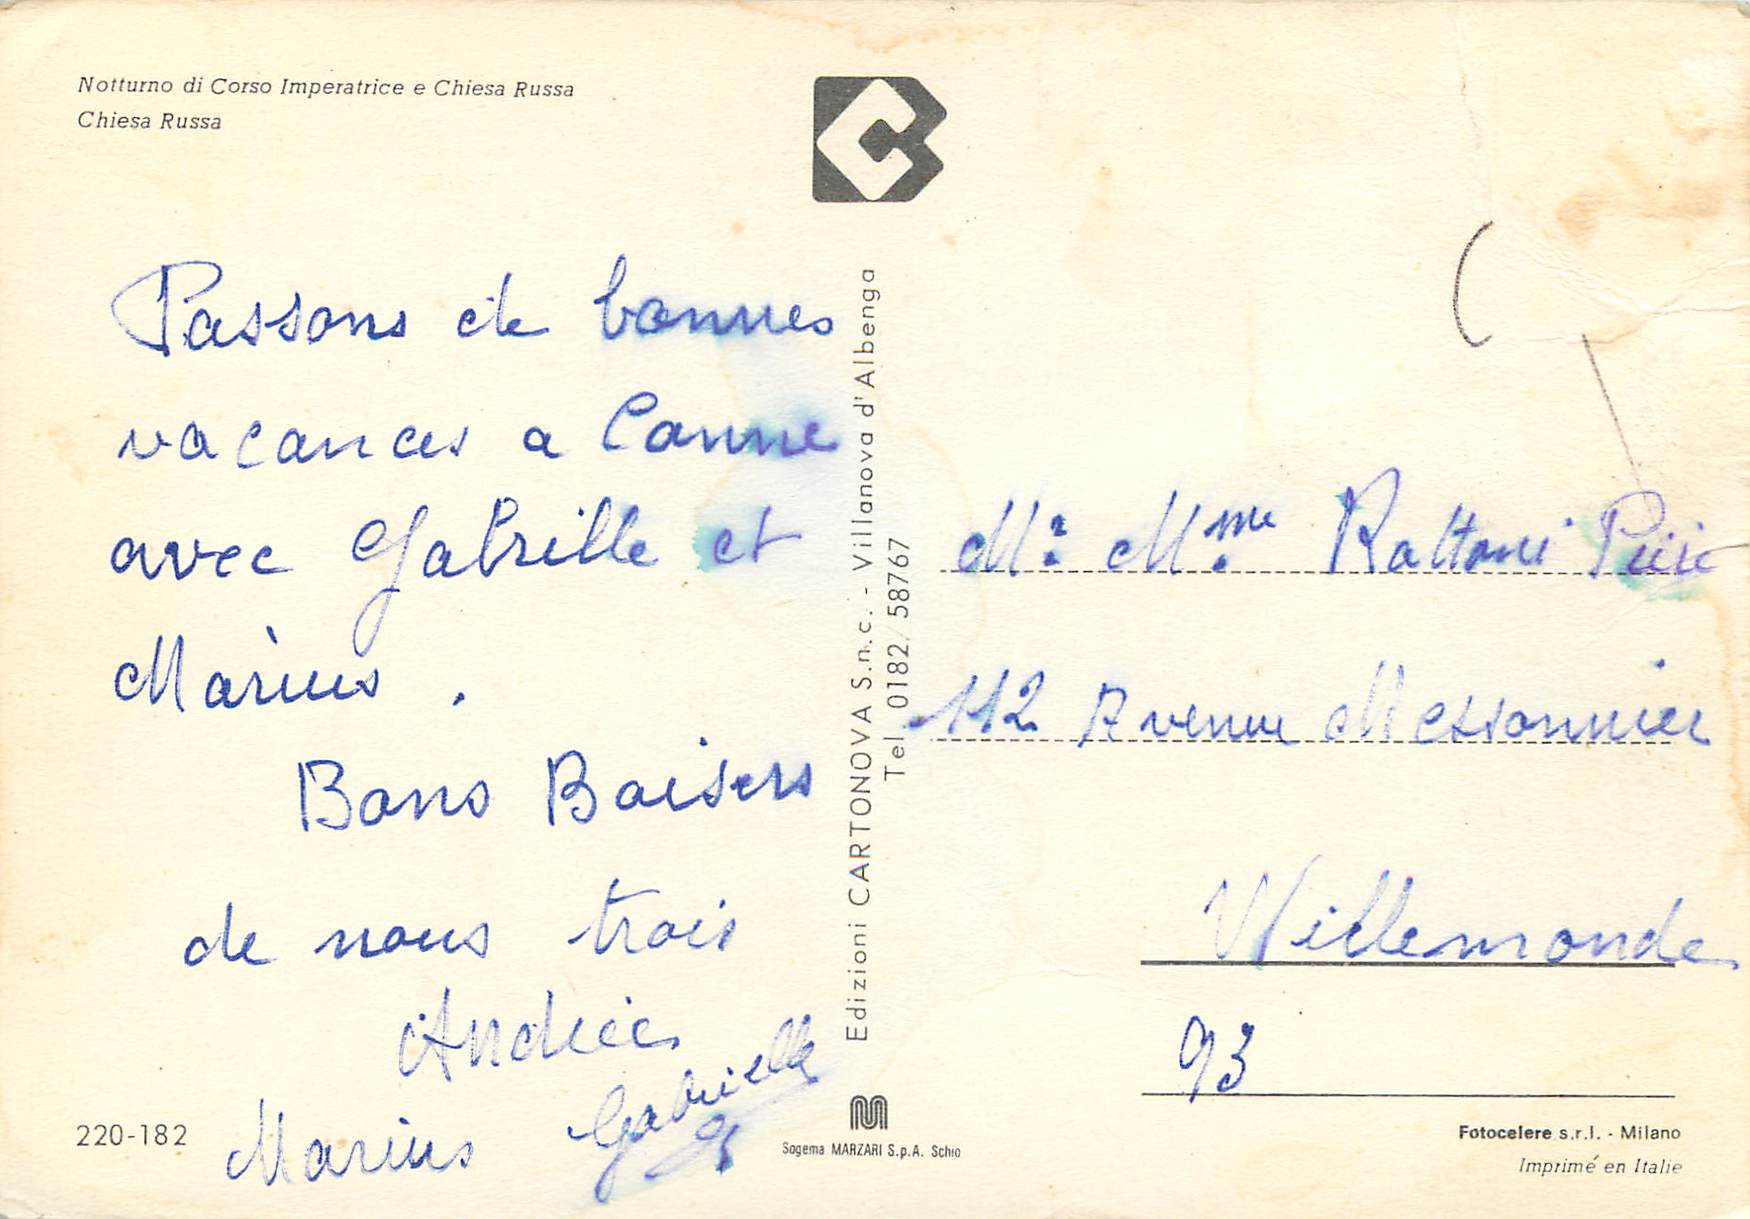 Notturno di Corso Imperatrice e Chiesa Russa
Chiesa Russa
Passons de bonnes
vacances a Canne
avec Gabrille et
Marius .
Bons Baisers
de nous trois
Andrée
Marius Gabrielle
220-182
Edizioni CARTONOVA S.n.c. - Villanova d'Albenga
Tel. 0182/58767
Sogema MARZARI S.p.A. Schio
M. Mme Rattoni
112 Avenue Messonnier
Villemonde
93
Fotocelere s.r.l. - Milano
Imprimé en Italie